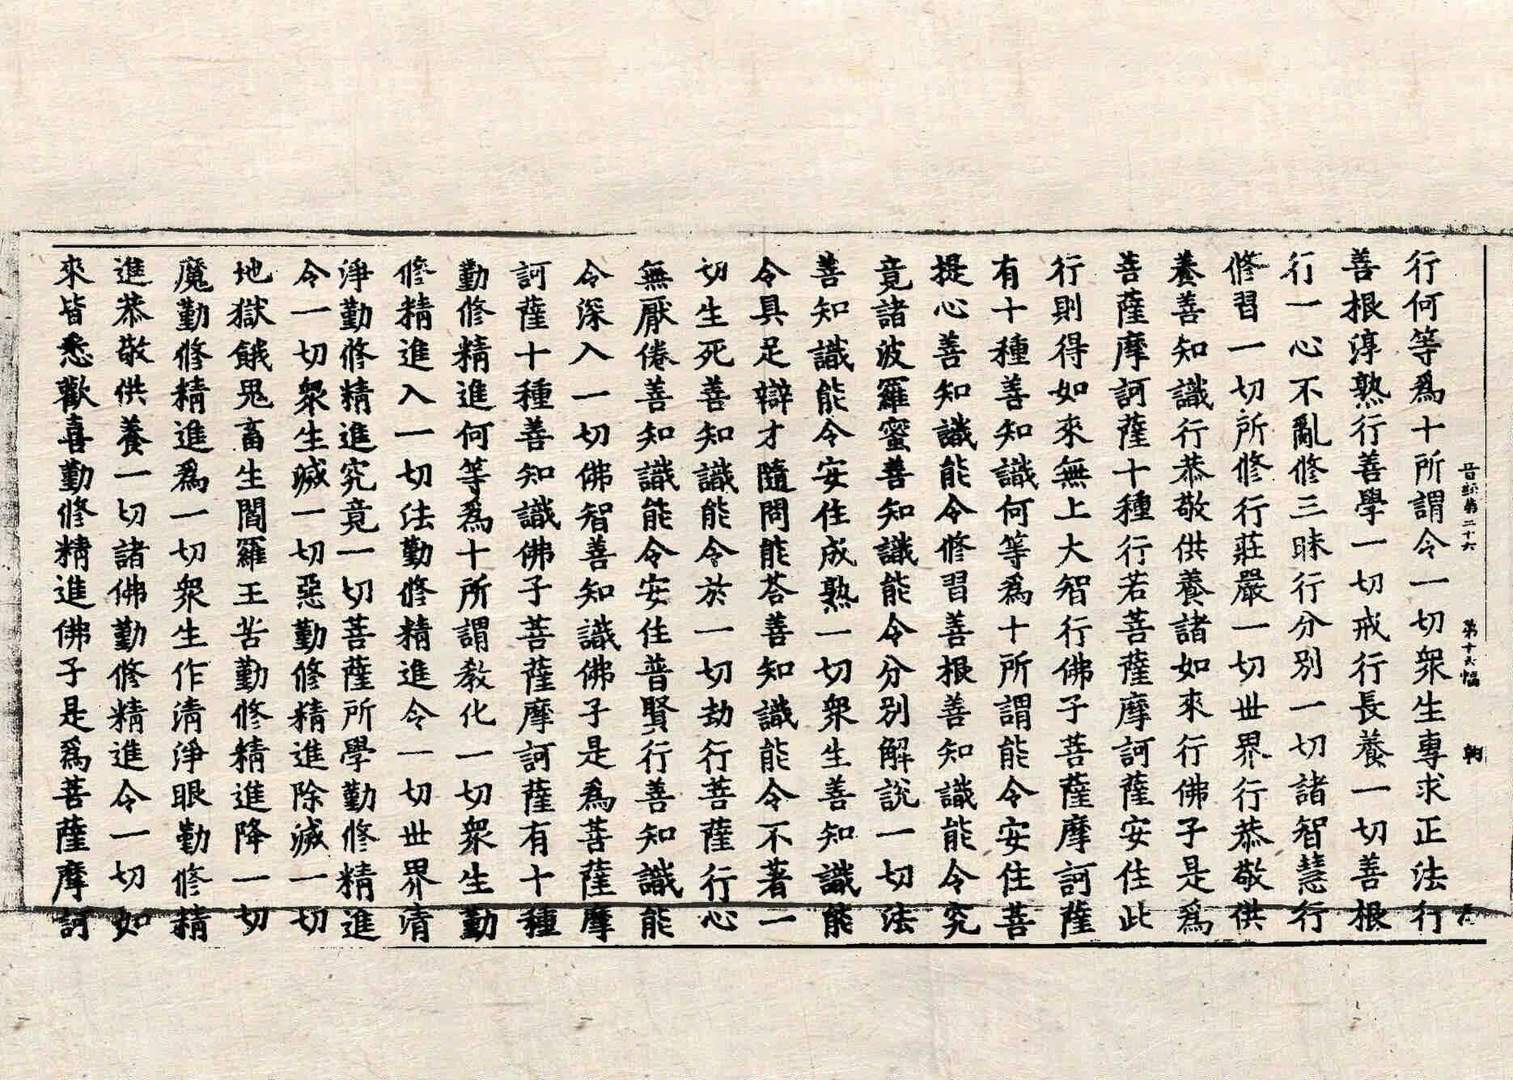 行何等爲十所謂令一切衆生專求正法行
善根淳熟行善學一切戒行長養一切善根
行一心不亂修三昧行分別一切諸智慧行
修習一切所修行莊嚴一切世界行恭敬供
養善知識行恭敬供養諸如來行佛子是爲
菩薩摩訶薩十種行若菩薩摩訶薩安住此
行則得如來無上大智行佛子菩薩摩訶薩
有十種善知識何等爲十所謂能令安住菩
提心善知識能令修習善根善知識能令究
竟諸波羅蜜善知識能令分別解説一切法
善知識能令安住成熟一切衆生善知識能
令具足辯才隨問能荅善知識能令不著一
切生死善知識能令於一切劫行菩薩行心
無厭倦善知識能令安住普賢行善知識能
令深入一切佛智善知識佛子是爲菩薩摩
訶薩十種善知識佛子菩薩摩訶薩有十種
勤修精進何等爲十所謂教化一切衆生勤
修精進入一切法勤修精進令一切世界清
淨勤修精進究竟一切菩薩所學勤修精進
令一切衆生滅一切惡勤修精進除滅一切
地獄餓鬼畜生閻羅王苦勤修精進降一切
魔勤修精進爲一切衆生作清淨眼勤修精
進恭敬供養一切諸佛勤修精進令一切如
來皆悉歡喜勤修精進佛子是爲菩薩摩訶